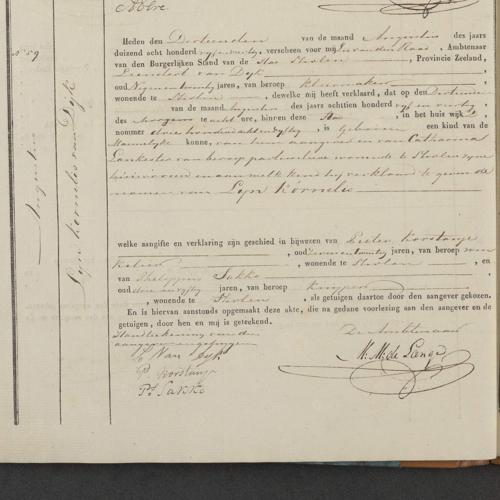 Heden den Dertienden van de maand Augustus des jaars
duizend acht honderd vyfenveertig, verscheen voor mij Ambtenaar
van den Burgerlijken Stand van de Stad Tholen, Provincie Zeeland,
Leendert van Dyk
oud Negenentwintig jaren, van beroep Kleermaker
wonende te Tholen, dewelke mij heeft verklaard, dat op den Dertiende
van de maand Augustus des jaars achttien honderd vyf en veertig,
des Morgens te acht ure, binnen deze Stad, in het huis wijk D,
nommer drie honderd, is geboren een kind van de
Mannelyke kunne, van hem aangever en van Catharina
Lankester van beroep particuliere wonende te Tholen zyne
huisvrouw en aan welk kind hy verklaard te geven de
namen van Lyn Kornelis
welke aangifte en verklaring zijn geschied in bijwezen van Pieter Korstanje
, oud jaren, van beroep
, wonende te Tholen, en
van Philippus Sakko
oud drie en vyftig jaren, van beroep Kuiper
, wonende te Tholen, als getuigen daartoe door den aangever gekozen.
En is hiervan aanstonds opgemaakt deze akte, die na gedane voorlezing aan den aangever en de
getuigen, door hen en mij is geteekend.
De Ambtenaar
L Van Dyk
P Korstanje
Ph Sakko
M. M. de Lange
N° 59
Augustus
Lyn Kornelis van Dyk